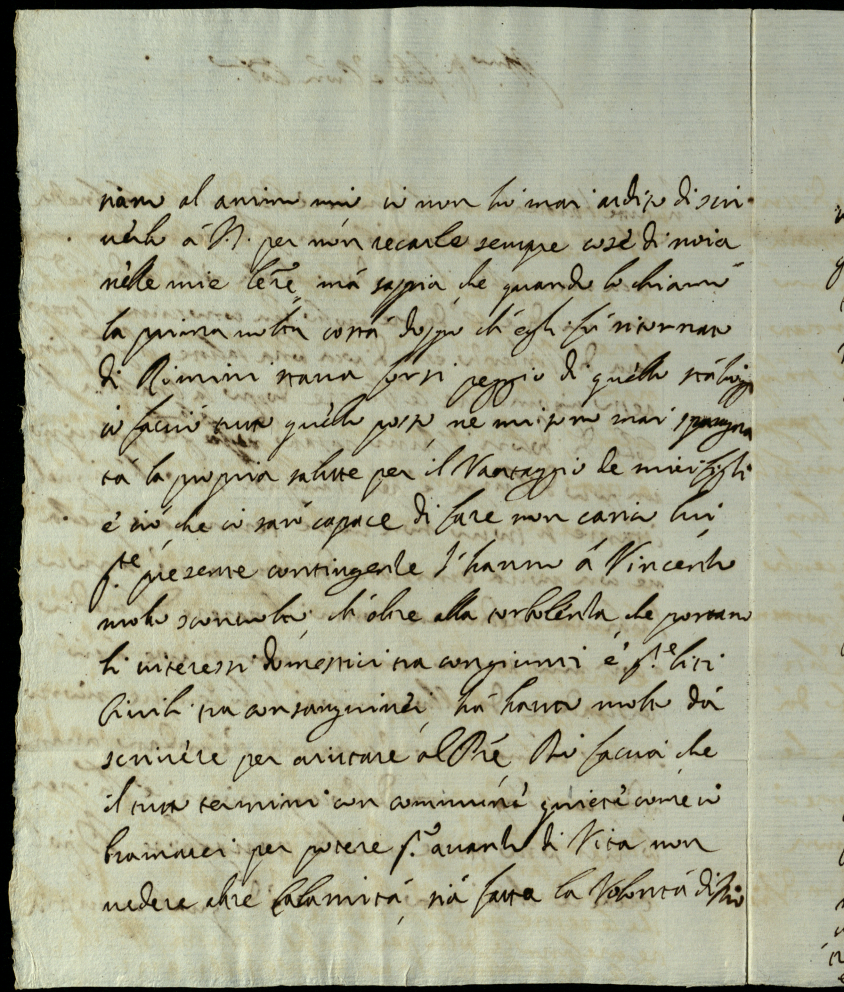 siamo al animo mio io non hò mai ardito di scri
verlo à N. per non recarle sempre cose di noia
nelle mie lere, mà sappia che quando lo chiamò
la prima volta costà doppo ch'egli fù ritornato
di Rimini stava forsi peggio di quello stà oggi
io facio tutto quello posso ne mi sono mai sparagna
ta la propria salute per il Vantaggio de miei figli
è ciò che io sarò capace di fare non caria lui
p.te presente contingenze l'hanno à Vincenzo
molto sconvolto ch'oltre alla torbolenza che portano
li interessi domestici tra congionti è p.te liti
Civili tra consanguinei, hà hauto molto dà
scrivere per aiutare al Pre Dio facia che
il tutto termini con comune quiete come io
bramarei per potere p.a avanzo di Vita non
vedere altre Calamità, sia fatta la Volontà di Dio